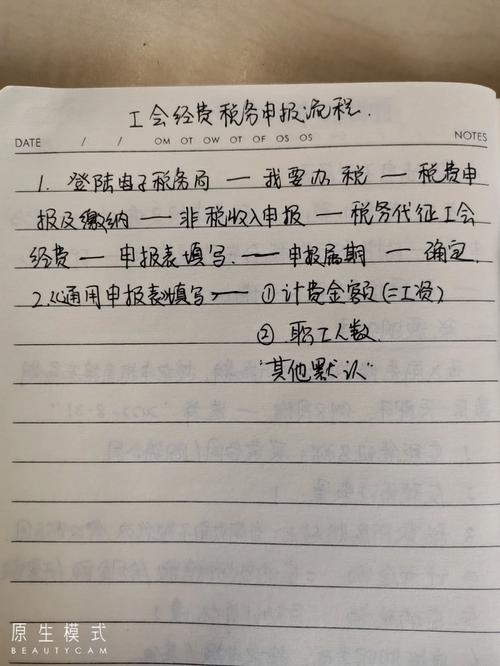 工会经费税务申报流程.
DATE / / OM OT OW OT OF OS OS NOTES
1. 登陆电子税务局 — 我要办税 — 税费申
报及缴纳 — 非税收入申报 — 税务代征工会
经费 — 申报表填写. — 申报属期 — 确定.
2.《通用申报表》填写 — ① 计费金额(=工资)
② 职工人数.
"其他默认"
原生模式
BEAUTYCAM